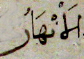 الَأنْهَارُ